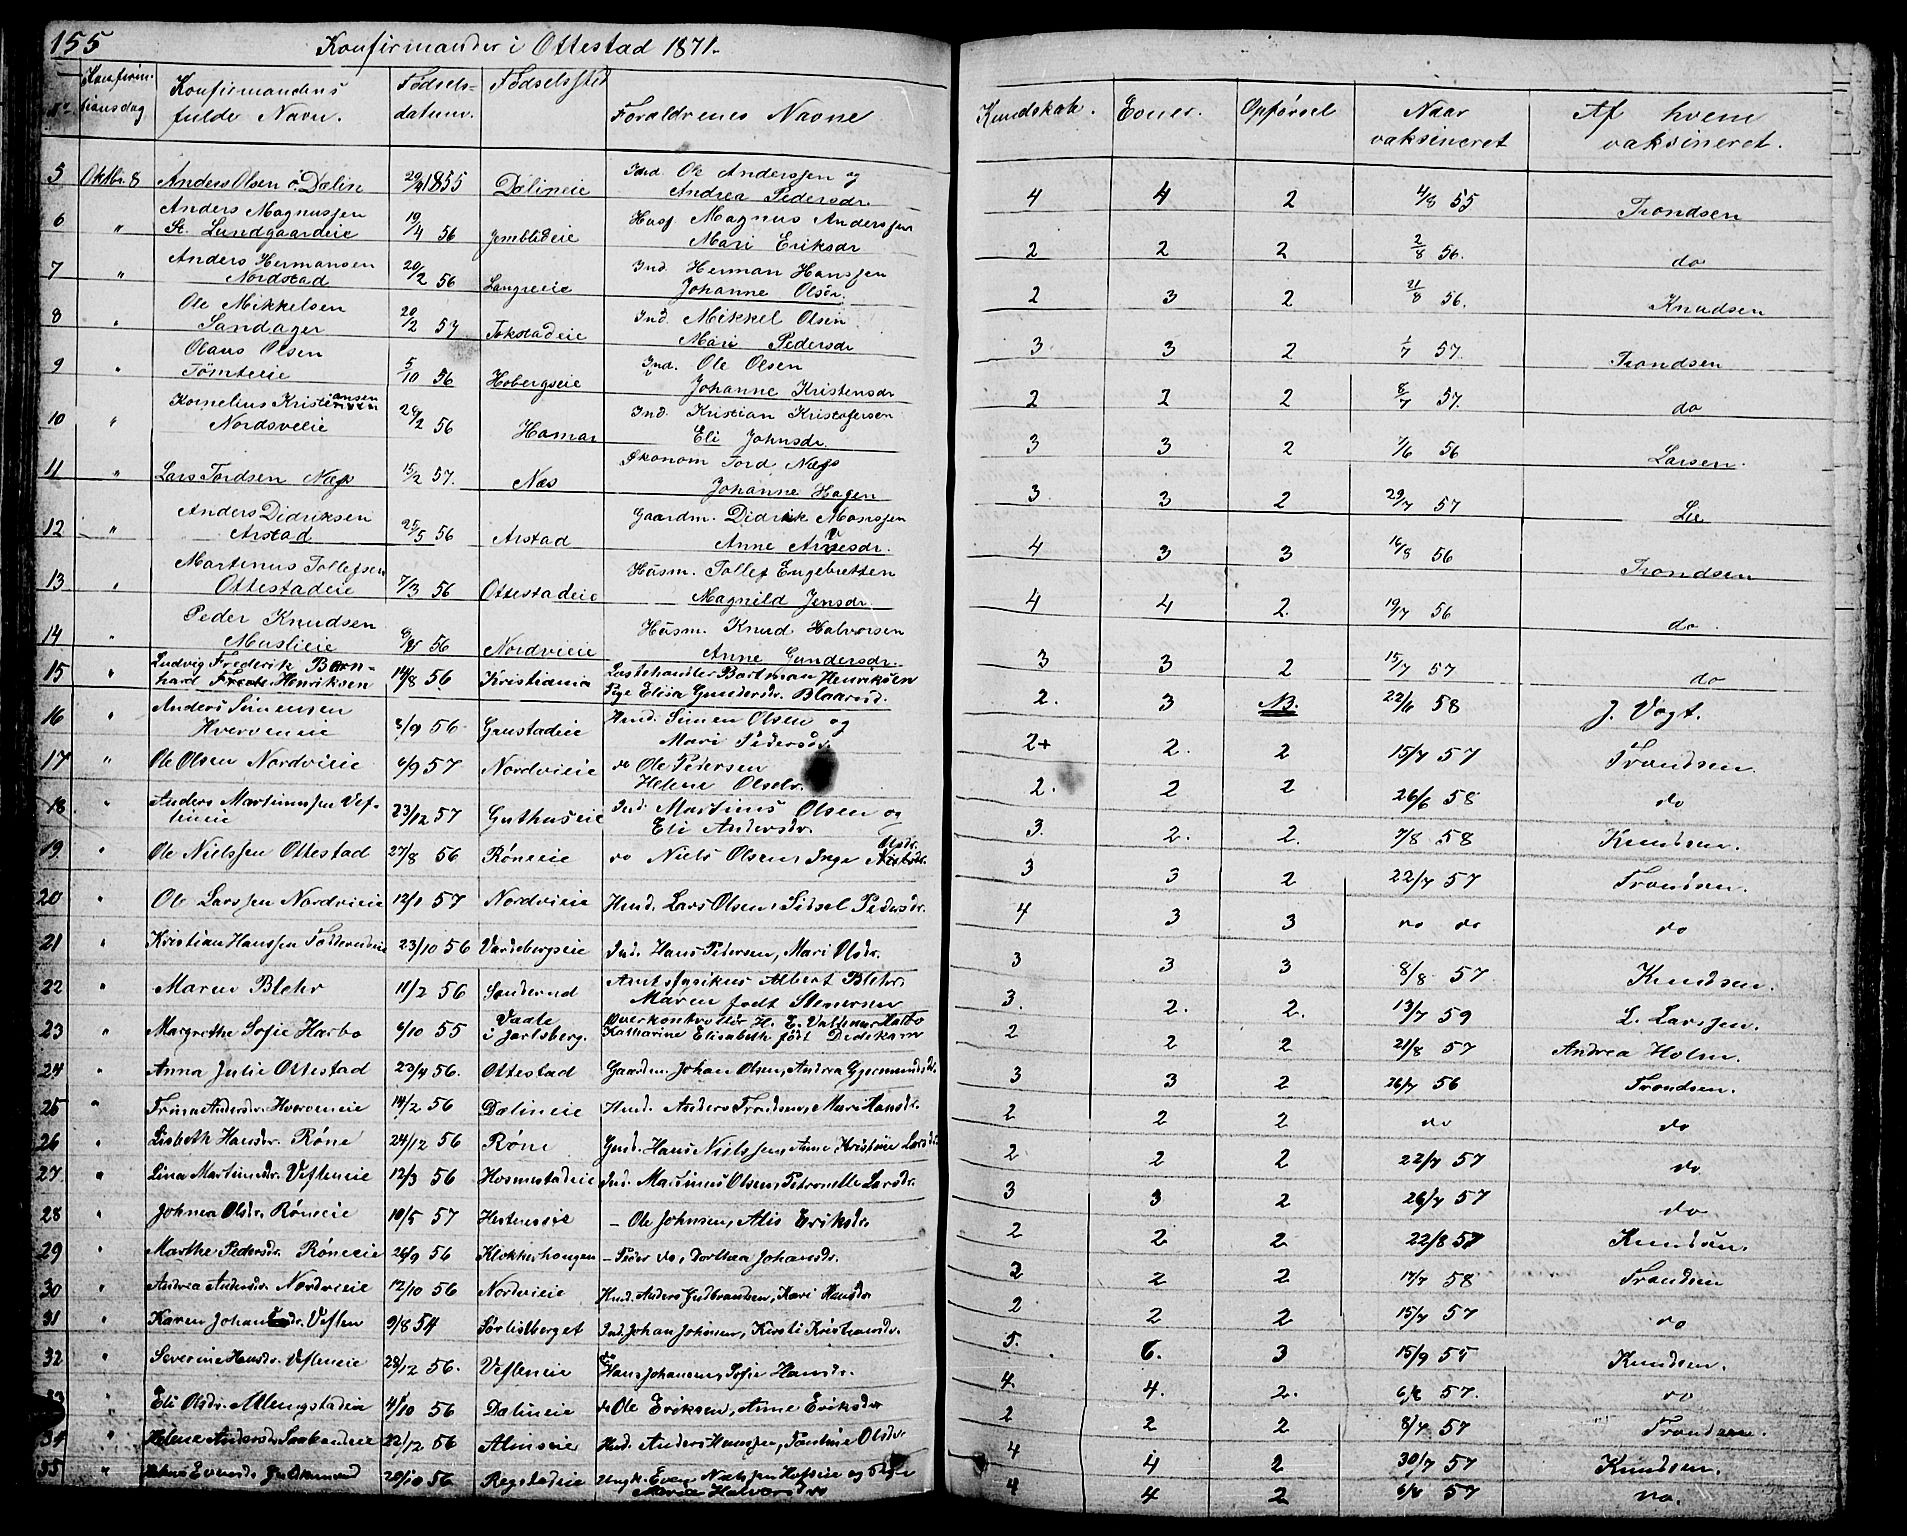 155
Konfirmander i Ottestad 1871.
Konfirma-
tionsdag
Konfirmandens
fulde Navn.
Fødsels-
datum.
Fødselssted
Forældrenes Navne
Kundskab. Evner. Opførsel
Naar
vaksineret
Af hvem
vaksineret.
5 Oktbr. 8 Anders Olsen Dæline 29/4 1855 Dælineie Ind Ole Anderssen og
Andrea Pedersdr. 4 4 2 4/8 55 Trondsen
6 " Anders Magnussen
St. Lundgaardeie 19/4 56 Jembleeie Husf Magnus Anderssen
Mari Eriksdr 2 2 2 2/8 56. do
7 " Anders Hermansen
Nordstad 20/2 56 Langreeie Ind. Herman Hanssen
Johanne Olsdr. 2 3 2 21/8 56. Knudsen
8 " Ole Mikkelsen
Sandager 20/2 57 Tokstadeie Ind. Mikkel Olsen
Mari Pedersdr 3 3 2 1/7 57. Trondsen
9 " Olaus Olsen
Tømteeie 5/10 56 Hobergseie Ind. Ole Olsen
Johanne Kristensdr 2 2 2 8/7 57. do
10 " Kornelius Kristiansen
Nordsveeie 28/2 56 Hamar Ind. Kristian Kristofersen
Eli Johnsdr. 3 3 2 7/6 56 Larsen.
11 " Lars Tordsen Næss 15/2 57. Næs Økonom Tord Næss
Johanne Hagen 3. 3 2 29/7 57 Lie
12 " Anders Didriksen
Arstad 25/5 56 Arstad Gaardm. Didrik Monssen
Anne Arnesdr. 4 3 3 16/8 56 Trondsen
13 " Martinus Tollefsen
Ottestadeie 7/3 56 Ottestadeie Husm. Tollef Engebretsen
Magnild Jensdr. 4 4 2. 19/7 56 do
14 " Peder Knudsen
Muslieie 56 Nordvieie Husm. Knud Halvorsen
Anne Gundersdr. 3 3 2 15/7 57 do
15 " Ludvig Frederik Bern-
hard Henriksen 14/8 56 Kristiania Lastehandler Bartman Henriksen
Pige Elisa Gundersdr. 2. 3 N. 22/6 58 J. Vogt.
16 " Anders Simensen
Hverveneie 3/9 56 Grustadeie Hmd. Simen Olsen og
Mari Pedersdr. 2+ 2. 2 15/7 57 Trondsen.
17 " Ole Olsen Nordvieie 6/9 57 Nordvieie do Ole Petersen
Helene Olsdr. 2. 2 2 26/6 58 do
18. " Anders Martinussen Vef-
leneie 23/12 57 Guthuseie Ind. Martinus Olsen og
Eli Andersdr. 3. 2. 2. 7/8 58 Knudsen.
19. " Ole Nielssen Ottestad 27/8 56 Røneeie do Niels Olsen, Inge Olsdr. 3 3 2 22/7 57 Trondsen.
20 " Ole Larssen Nordvieie 12/1 57 Nordvieie Hmd. Lars Olsen, Sidsel Pedersdr. 4 3 3 do do do
21 " Kristian Hanssen 23/10 56 Vardebergseie Ind. Hans Petersen, Mari Olsdr. 3 3 3 8/8 57 Knudsen.
22 " Maren Blehr 11/2 56 Sønderud Amtsfysikus Albert Blehr
Maren født Stenersen 3. 2. 2. 13/7 59 L. Larssen.
23 " Margrethe Sofie Harbo 6/10 55 Vaale
i Jarlsberg. Overkontrollør H. E. Valdemar Harbo
Katharine Elisabeth født Dedekam 2 2 2 21/8 57 Andrea Holm.
24 " Anna Julie Ottestad 23/4 56. Ottestad Gaardm. Johan Olsen, Andrea Gjermundsdr. 3 3 2 26/7 56 Trondsen.
25 " Trina Andersdr. Hverveneie 14/2 56 Dælineie Hmd. Anders Trondsen, Mari Hansdr. 2 2 2 do do
26 " Lisbeth Hansdr. Røne 24/12 56 Røne Gmd. Hans Nielssen, Anne Kristine Larsdr. 2 2 2 22/7 57 do
27 " Lina Martinusdr. Vefleneie 12/3 56 Hosmestadeie Ind. Martinus Olsen, Petronelle Larsdr. 3 3 2 26/7 57 do
28 " Johna Olsdr. Røneeie 10/5 57 Hesteneseie – Ole Johnsen, Alis Eriksdr. 2 2 2 22/8 57 Knudsen.
29 " Marthe Pedersdr. Røneeie 26/9 56 Klokkerhaugen – Peder do, Dorthea Johansdr. 2 2 2 17/7 58 Trondsen
30 " Andrea Andersdr. Nordvieie 12/10 56 Nordvieie Hmd. Anders Gulbrandsen, Kari Hansdr 2 2 2 15/7 57 do
31 " Karen Johansdr. Veflen 9/8 54 Sørlisberget Ind. Johan Johnsen, Kirsti Kristiansdr. 5. 6. 3 15/9 55 Knudsen.
32 " Severine Hansdr. Vefleneie 28/12 56. Vefleneie do Hans Johansen, Sofie Hansdr. 4. 4. 2. 6/8 57. do
33 " Eli Olsdr. Atlungstadeie 4/10 56 Dælineie do Ole Eriksen, Anne Eriksdr 2 2 2 8/7 57 Trondsen.
34 " Helene Andersdr. 22/12 56 Almseie Hmd. Anders Hanssen, Pauline Olsdr. 4 4 2 30/7 57 Knudsen.
35 " Evensdr. 20/10 56 Regstadeie Ungk. Even Nielssen og Pige
Marie Halvorsdr 4 4 2 6/8 57 do.